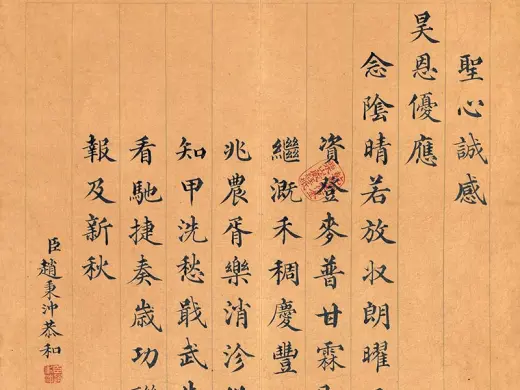 聖心誠感
昊恩優應
念陰晴若放收朗曜
資登麥普甘霖
繼溉禾稠慶豐
兆農胥樂消沴
知甲洗愁戢武
看馳捷奏歲功
報及新秋
臣趙秉沖恭和